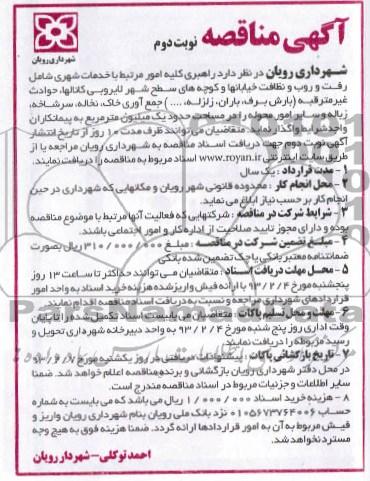 آگهی مناقصه نوبت دوم
شهرداری رویان
شهرداری رویان در نظر دارد راهبری کلیه امور مرتبط با خدمات شهری شامل
رفت و روب و نظافت خیابانها و کوچه های سطح شهر، لایروبی کانالها، حوادث
غیرمترقبه (بارش برف، باران، زلزله، .... ) جمع آوری خاک، نخاله، سرشاخه،
زباله و سایر امور محوله را در مساحت حدود یک میلیون مترمربع به پیمانکاران
واجد شرایط واگذار نماید. متقاضیان می توانند ظرف مدت ۱۰ روز از تاریخ انتشار
آگهی نوبت دوم جهت دریافت اسناد مناقصه به شهرداری رویان مراجعه یا از
طریق سایت اینترنتی www.royan.ir اسناد مربوط به مناقصه را دریافت نمایند.
۱ - مدت قرارداد : یک سال
۲ - محل انجام کار : محدوده قانونی شهر رویان و مکانهایی که شهرداری در حین
انجام کار بر حسب نیاز ابلاغ می نماید.
۳ - شرایط شرکت در مناقصه : شرکتهایی که فعالیت آنها مرتبط با موضوع مناقصه
بوده و دارای مجوز تایید صلاحیت از اداره کار و امور اجتماعی باشند.
۴ - مبلغ تضمین شرکت در مناقصه : مبلغ ۳۱۰/۰۰۰/۰۰۰ ریال بصورت
ضمانتنامه معتبر بانکی یا چک تضمین شده بانکی
۵ - محل مهلت دریافت اسناد : متقاضیان می توانند حداکثر تا ساعت ۱۳ روز
پنجشنبه مورخ ۹۳/۲/۴ با ارائه فیش واریز شده هزینه خرید اسناد به واحد امور
قراردادهای شهرداری مراجعه و نسبت به دریافت اسناد مناقصه اقدام نمایند.
۶ - مهلت و محل تسلیم پاکات : متقاضیان می بایست اسناد تکمیل شده را تا پایان
وقت اداری روز پنج شنبه مورخ ۹۳/۲/۴ به واحد دبیرخانه شهرداری تحویل و
رسید مربوطه را دریافت نمایند.
۷ - تاریخ بازگشائی پاکات : پیشنهادات دریافتی در روز یکشنبه مورخ
در محل دفتر شهرداری رویان بازگشائی و برنده مناقصه اعلام خواهد شد. ضمنا
سایر اطلاعات و جزئیات مربوط در اسناد مناقصه مندرج است.
۸ - هزینه خرید اسناد ۱/۰۰۰/۰۰۰ ریال می باشد که می بایست به شماره
حساب ۰۱۰۵۶۷۳۷۶۴۰۰۶ نزد بانک ملی رویان بنام شهرداری رویان واریز و
فیش مربوط به آن به امور قراردادها ارائه گردد. ضمنا هزینه فوق به هیچ وجه
مسترد نخواهد شد.
احمد توکلی - شهردار رویان